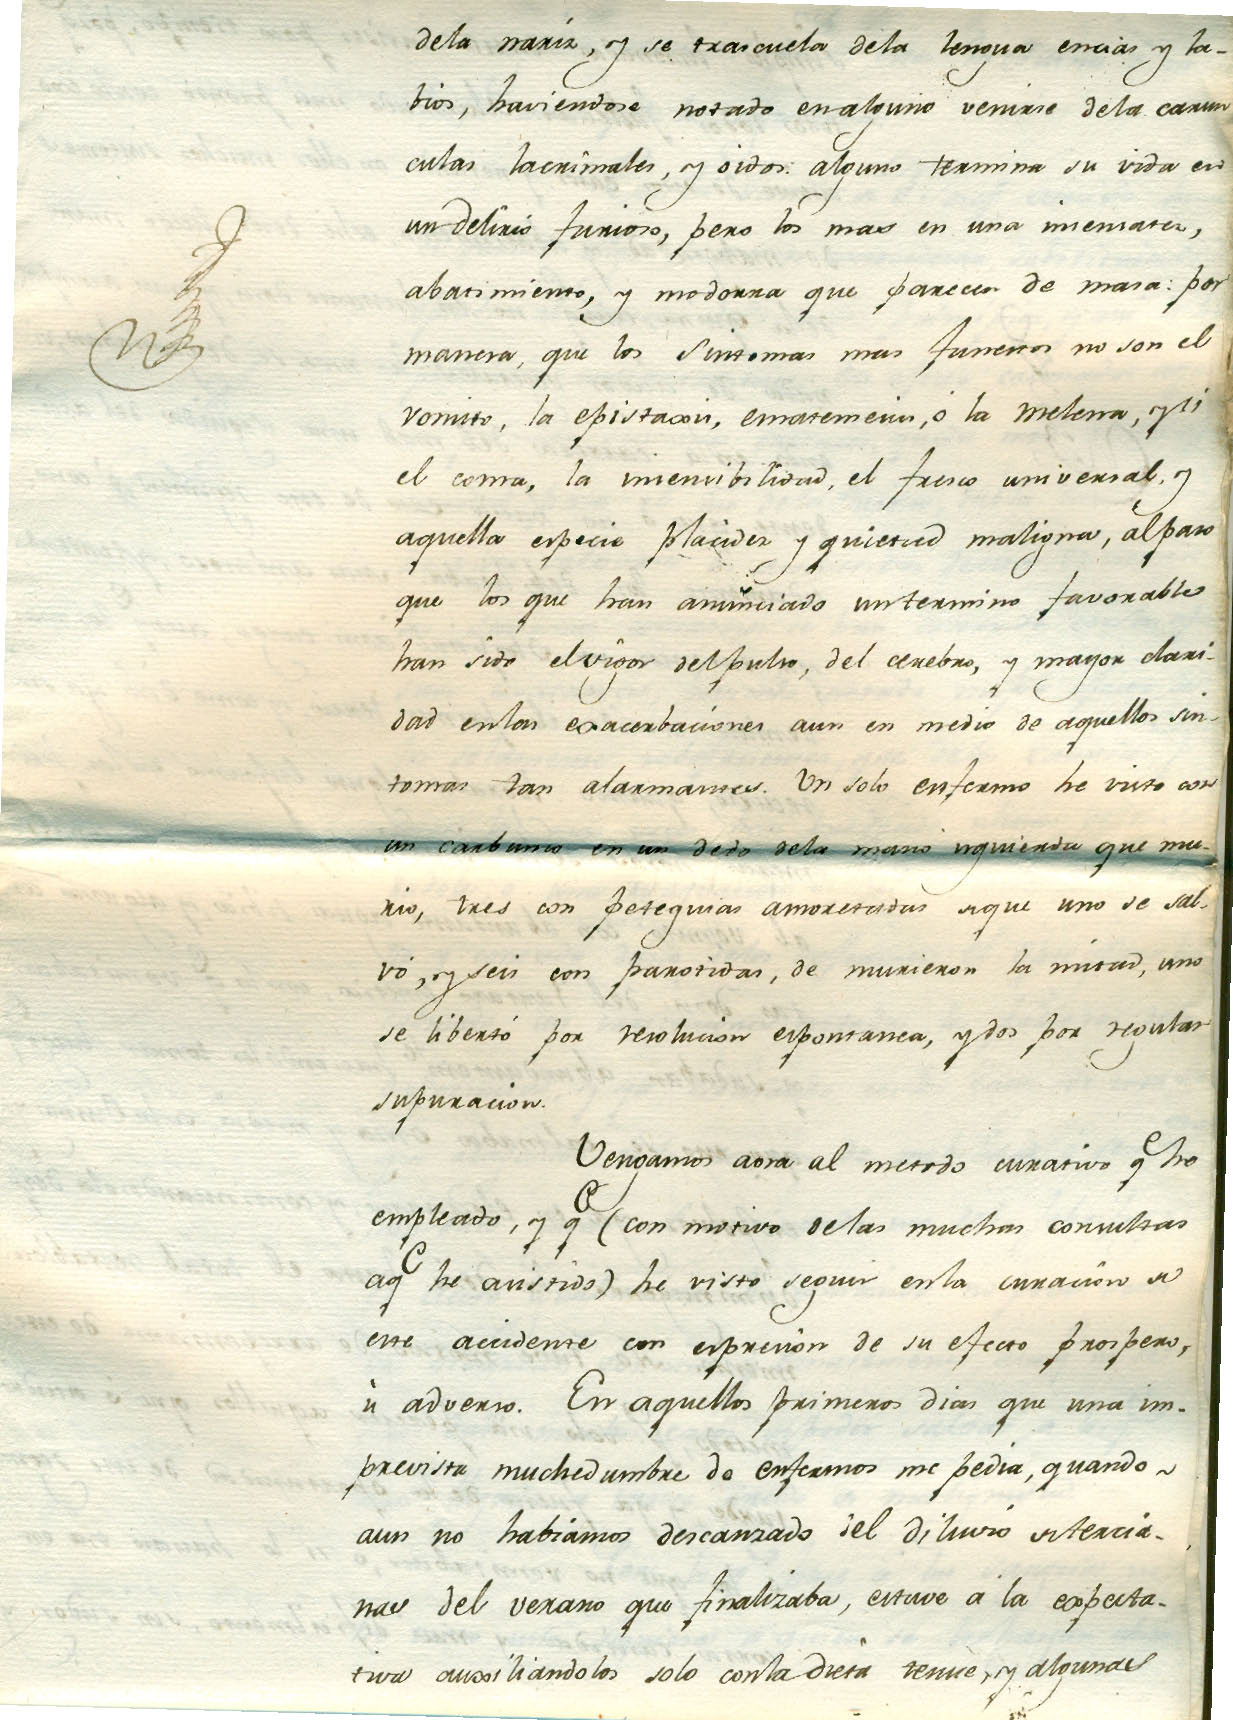 dela nariz, y se trascuela dela lengua encias y la-
bios, haviendose notado en alguno venirse dela carun
culas lacrimales, y oidos: alguno termina su vida en
un delirio furioso, pero los mas en una insensatez,
abatimiento, y modorra que parecen de masa: por
manera, que los sintomas mas funestos no son el
vomito, la epistaxis, ematemesis, ó la melena, y si
el coma, la insensibilidad, el fresco universal, y
aquella especie placidez y quietud maligna, al paso
que los que han anunciado un termino favorable
han sido el vigor del pulso, del cerebro, y mayor clari-
dad enlas exacerbaciones aun en medio de aquellos sin-
tomas tan alarmantes. Un solo enfermo he visto con
un carbunco en un dedo dela mano izquierda que mu-
rio, tres con petequias amoretadas de que uno se sal-
vó, y seis con parotidas, de murieron la mitad, uno
se libertó por resolucion espontanea, y dos por regular
supuracion.
Vengamos aora al metodo curativo qe he
empleado, y qe (con motivo delas muchas consultas
aqe he asistido) he visto seguir enla curacion de
este accidente con espresion de su efecto prospero,
ù adverso. En aquellos primeros dias que una im-
prevista muchedumbre de enfermos me pedia, quando
aun no habiamos descanzado del diluvio de tercia-
nas del verano que finalizaba, estuve a la expecta-
tiva auxiliandolos solo conla dieta tenue, y algunas